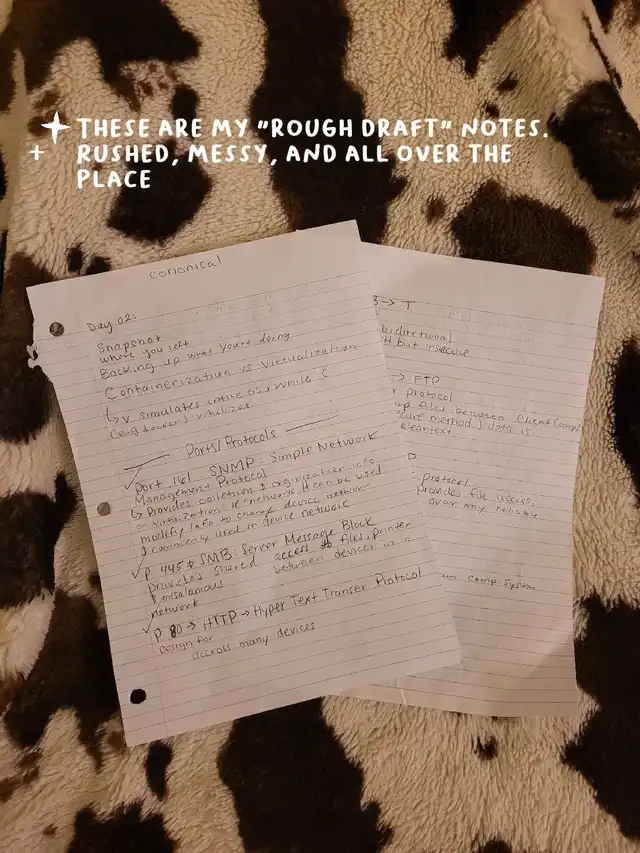 THESE ARE MY "ROUGH DRAFT" NOTES.
RUSHED, MESSY, AND ALL OVER THE
PLACE
cononical
Day 02:
Snapshot
where you left
Backing up what you're doing
Containerization vs Virtualization
↳ V simulates entire OS, while C
(e.g docker) virtulizes
Ports/Protocols
✓ Port 161 SNMP: Simple Network
Management Protocol
↳ Provides collection & organization info
on virtulization IP network. It can be used
modify info to change device network
& commonly used in device network
✓ P 445 SMB: Server Message Block
provides shared access to files, printer
& misalanous between devices in a
network
✓ P 80 → HTTP → Hyper Text Transer Protocol
Design for
accross many devices
3 → T
bidirectional
but insecure
→ FTP
protocol
files between client
method) data is
cleartext
Protocol
Provides file access,
over any reliably
comp system